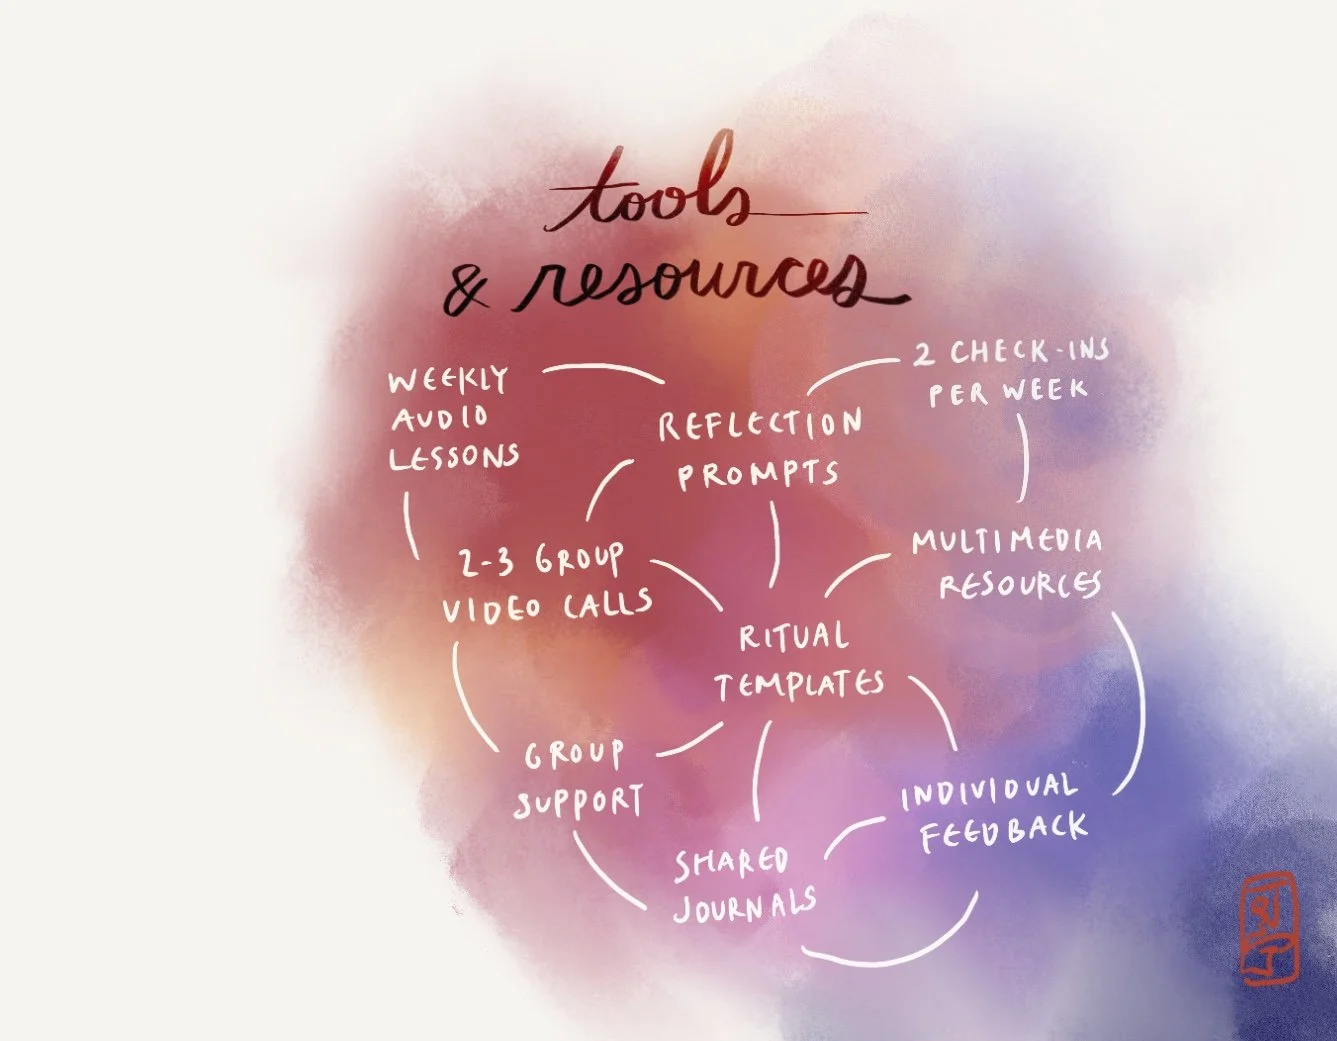 tools
& resources
WEEKLY
AUDIO
LESSONS
REFLECTION
PROMPTS
2 CHECK-INS
PER WEEK
2-3 GROUP
VIDEO CALLS
MULTIMEDIA
RESOURCES
RITUAL
TEMPLATES
GROUP
SUPPORT
INDIVIDUAL
FEEDBACK
SHARED
JOURNALS